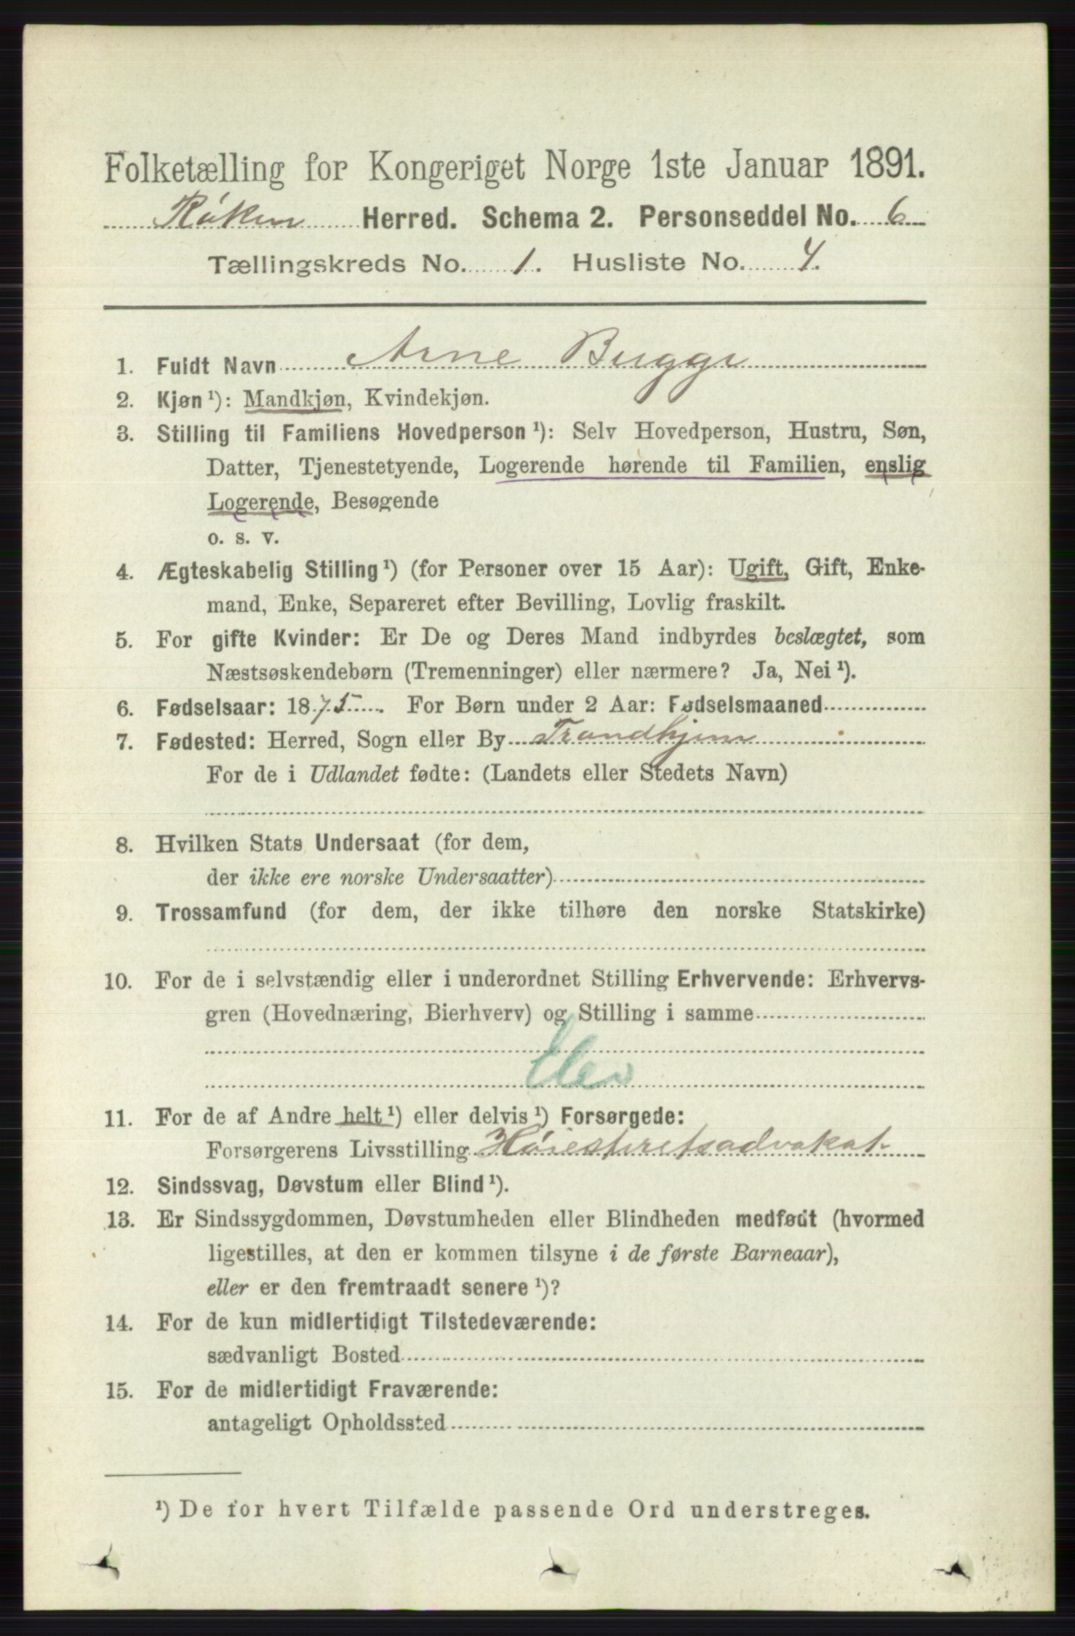 Folketælling for Kongeriget Norge 1ste Januar 1891.
Røken Herred. Schema 2. Personseddel No. 6
Tællingskreds No. 1. Husliste No. 4.
1. Fuldt Navn Arne Bugge
2. Kjøn ¹): Mandkjøn, Kvindekjøn.
3. Stilling til Familiens Hovedperson ¹): Selv Hovedperson, Hustru, Søn,
Datter, Tjenestetyende, Logerende hørende til Familien, enslig
Logerende, Besøgende
o. s. v.
4. Ægteskabelig Stilling ¹) (for Personer over 15 Aar): Ugift, Gift, Enke-
mand, Enke, Separeret efter Bevilling, Lovlig fraskilt.
5. For gifte Kvinder: Er De og Deres Mand indbyrdes beslægtet, som
Næstsøskendebørn (Tremenninger) eller nærmere? Ja, Nei ¹).
6. Fødselsaar: 1875. For Børn under 2 Aar: Fødselsmaaned
7. Fødested: Herred, Sogn eller By Trondhjem
For de i Udlandet fødte: (Landets eller Stedets Navn)
8. Hvilken Stats Undersaat (for dem,
der ikke ere norske Undersaatter)
9. Trossamfund (for dem, der ikke tilhøre den norske Statskirke)
10. For de i selvstændig eller i underordnet Stilling Erhvervende: Erhvervs-
gren (Hovednæring, Bierhverv) og Stilling i samme
Elev
11. For de af Andre helt ¹) eller delvis ¹) Forsørgede:
Forsørgerens Livsstilling Høiesteretsadvokat
12. Sindssvag, Døvstum eller Blind ¹).
13. Er Sindssygdommen, Døvstumheden eller Blindheden medfødt (hvormed
ligestilles, at den er kommen tilsyne i de første Barneaar),
eller er den fremtraadt senere ¹)?
14. For de kun midlertidigt Tilstedeværende:
sædvanligt Bosted
15. For de midlertidigt Fraværende:
antageligt Opholdssted
¹) De for hvert Tilfælde passende Ord understreges.